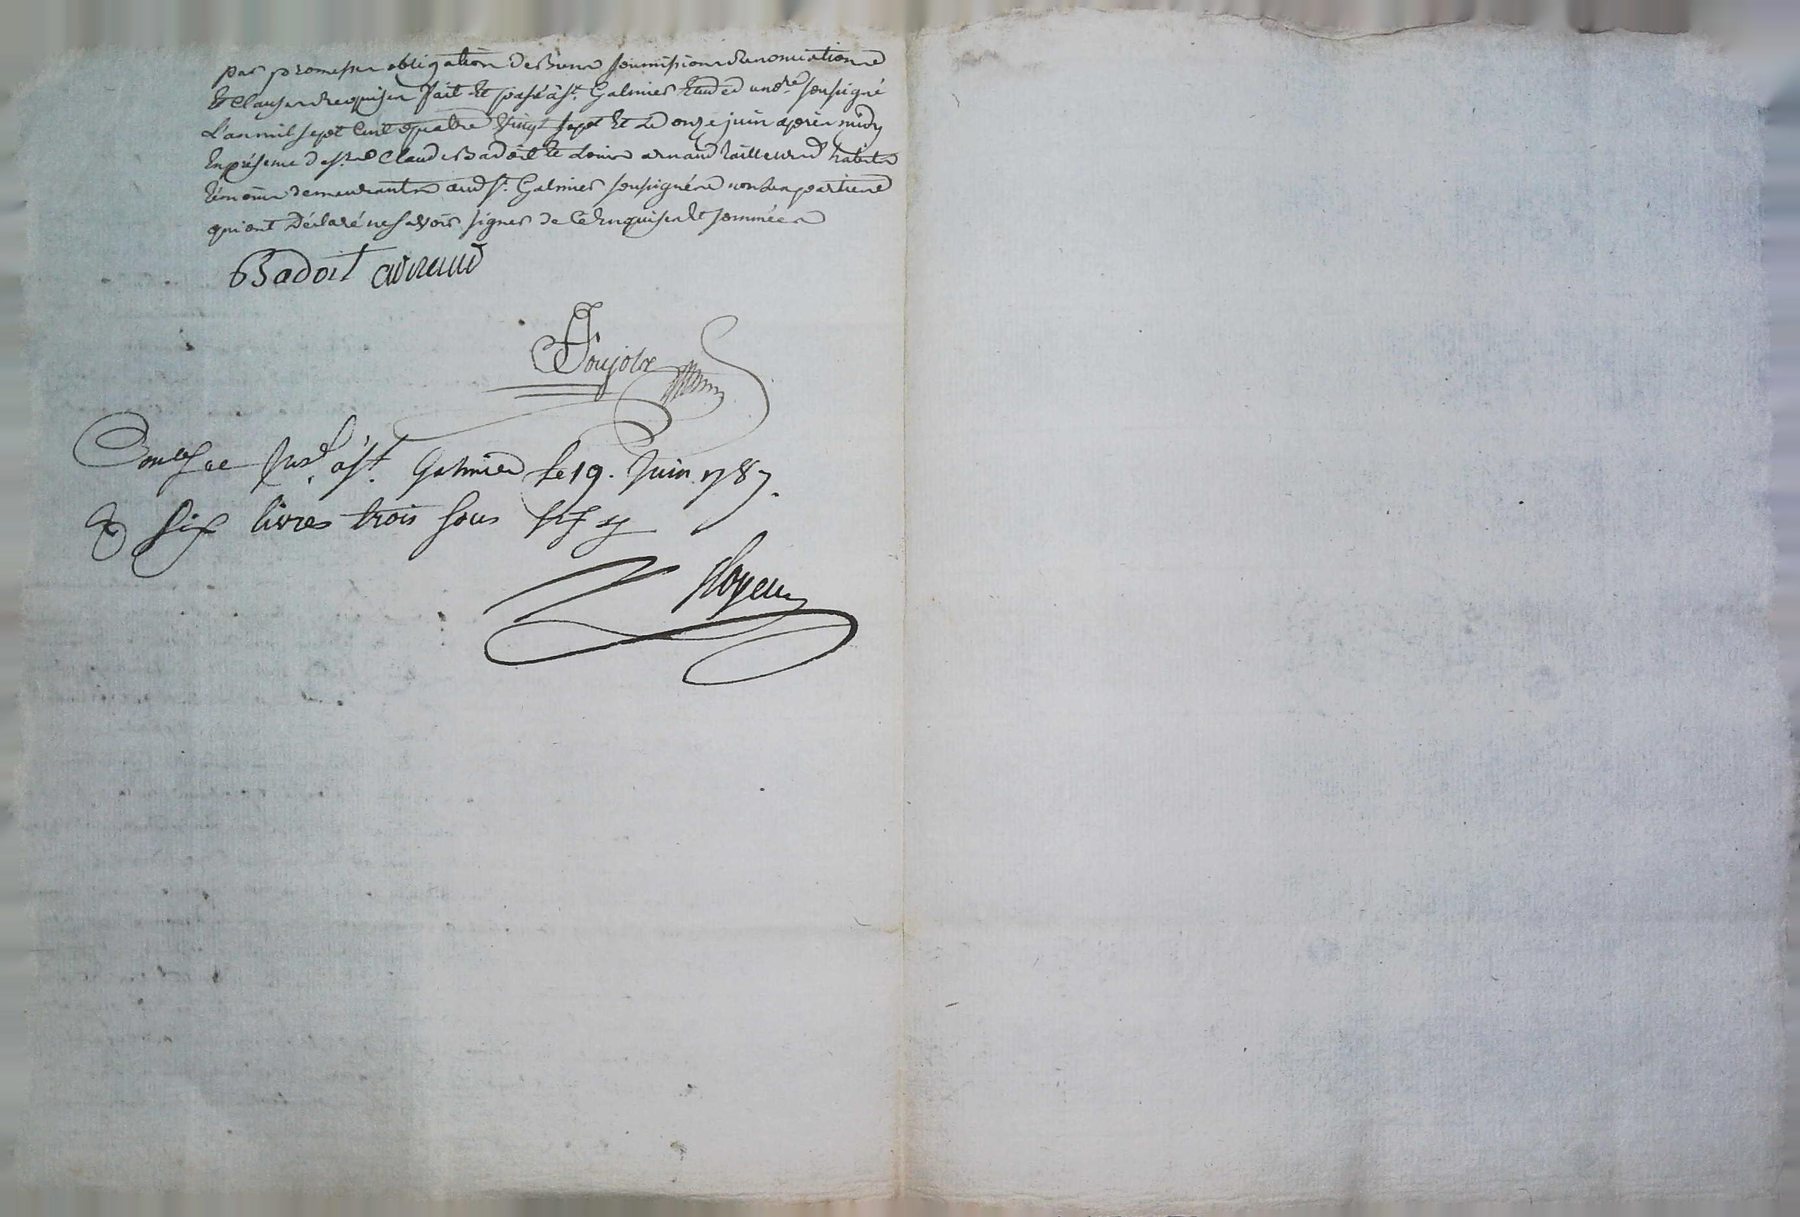 par promesse obligation de Biens soumissions Renonciations
Et Clauses Requises fait Et passé à St. Galmier Etude du nore. soussigné
L'an mil sept Cent quatre Vingt sept Et Le onze juin après midy
En présence de sr. Claude Badoit Et Louis arnaud tailleur d'habits
témoins demeurants aud St. Galmier soussignés non Les parties
qui ont Déclaré ne savoir signer de Ce Enquises Et sommées
Badoit arnaud
Poujols
Conlé à St. Galmier le 19. Juin 1787.
six livres trois sous